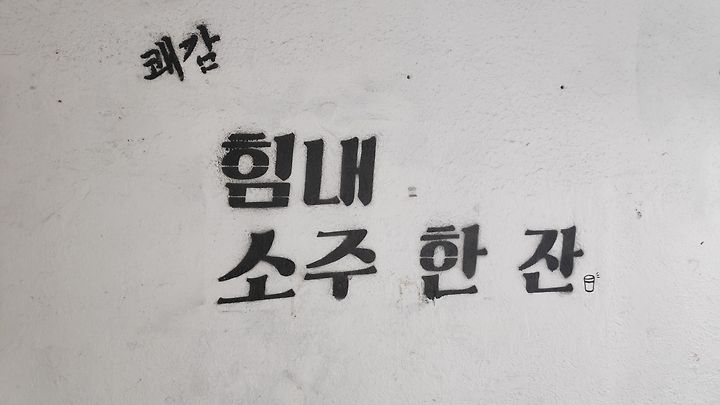 쾌감
힘내
소주 한 잔